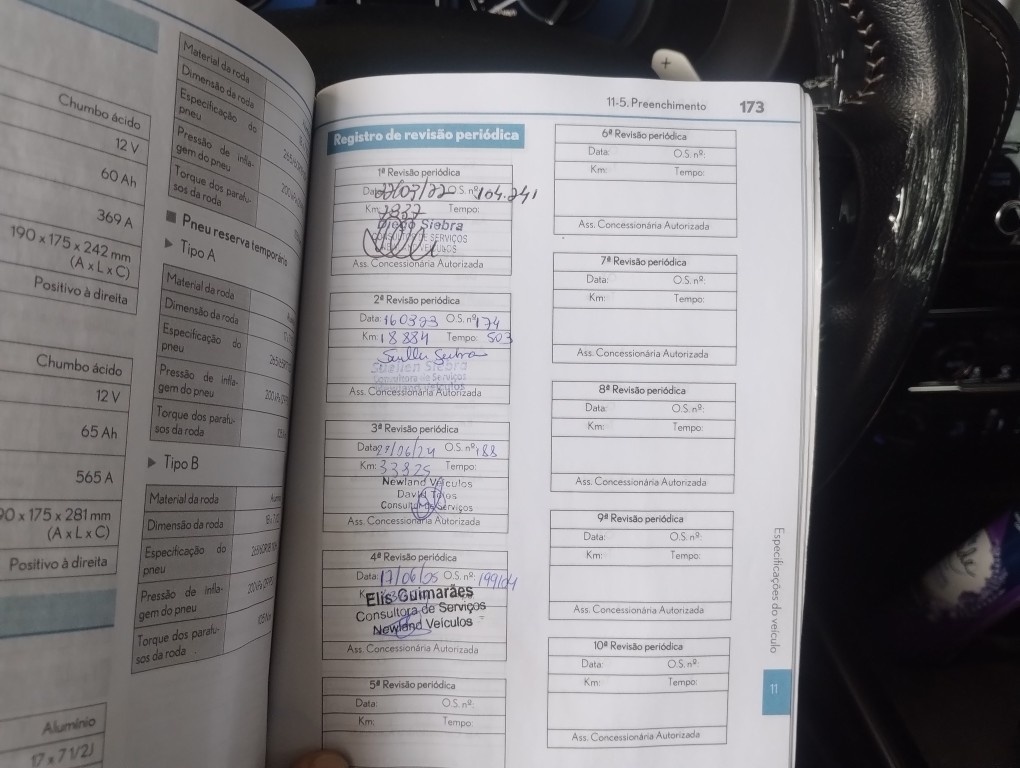 Chumbo ácido
12 V
60 Ah
369 A
190 x 175 x 242 mm
(A x L x C)
Positivo à direita
Chumbo ácido
12 V
65 Ah
565 A
90 x 175 x 281 mm
(A x L x C)
Positivo à direita
Alumínio
17 x 7 1/2J
Material da roda
Dimensão da roda
Especificação do
pneu
Pressão de infla-
gem do pneu
Torque dos parafu-
sos da roda
■ Pneu reserva temporário
▶ Tipo A
Material da roda
Dimensão da roda
Especificação do
pneu
Pressão de infla-
gem do pneu
Torque dos parafu-
sos da roda
▶ Tipo B
Material da roda
Dimensão da roda
Especificação do
pneu
Pressão de infla-
gem do pneu
Torque dos parafu-
sos da roda
11-5. Preenchimento 173
Registro de revisão periódica
1ª Revisão periódica
Data: O.S. nº: 104.241
Km: 7837 Tempo:
Diego Siebra
Ass. Concessionária Autorizada
2ª Revisão periódica
Data: 160323 O.S. nº: 174
Km: 18884 Tempo: 503
Suellen Siebra
Consultora de Serviços
Ass. Concessionária Autorizada
3ª Revisão periódica
Data: 27/06/24 O.S. nº: 188
Km: 33825 Tempo:
Newland Veículos
David Teles
Consultor de Serviços
Ass. Concessionária Autorizada
4ª Revisão periódica
Data: 17/06/25 O.S. nº: 199104
Elis Guimarães
Consultora de Serviços
Newland Veiculos
Ass. Concessionária Autorizada
5ª Revisão periódica
Data: O.S. nº:
Km: Tempo:
6ª Revisão periódica
Data: O.S. nº:
Km: Tempo:
Ass. Concessionária Autorizada
7ª Revisão periódica
Data: O.S. nº:
Km: Tempo:
Ass. Concessionária Autorizada
8ª Revisão periódica
Data: O.S. nº:
Km: Tempo:
Ass. Concessionária Autorizada
9ª Revisão periódica
Data: O.S. nº:
Km: Tempo:
Ass. Concessionária Autorizada
10ª Revisão periódica
Data: O.S. nº:
Km: Tempo:
Ass. Concessionária Autorizada
Especificações do veículo
11